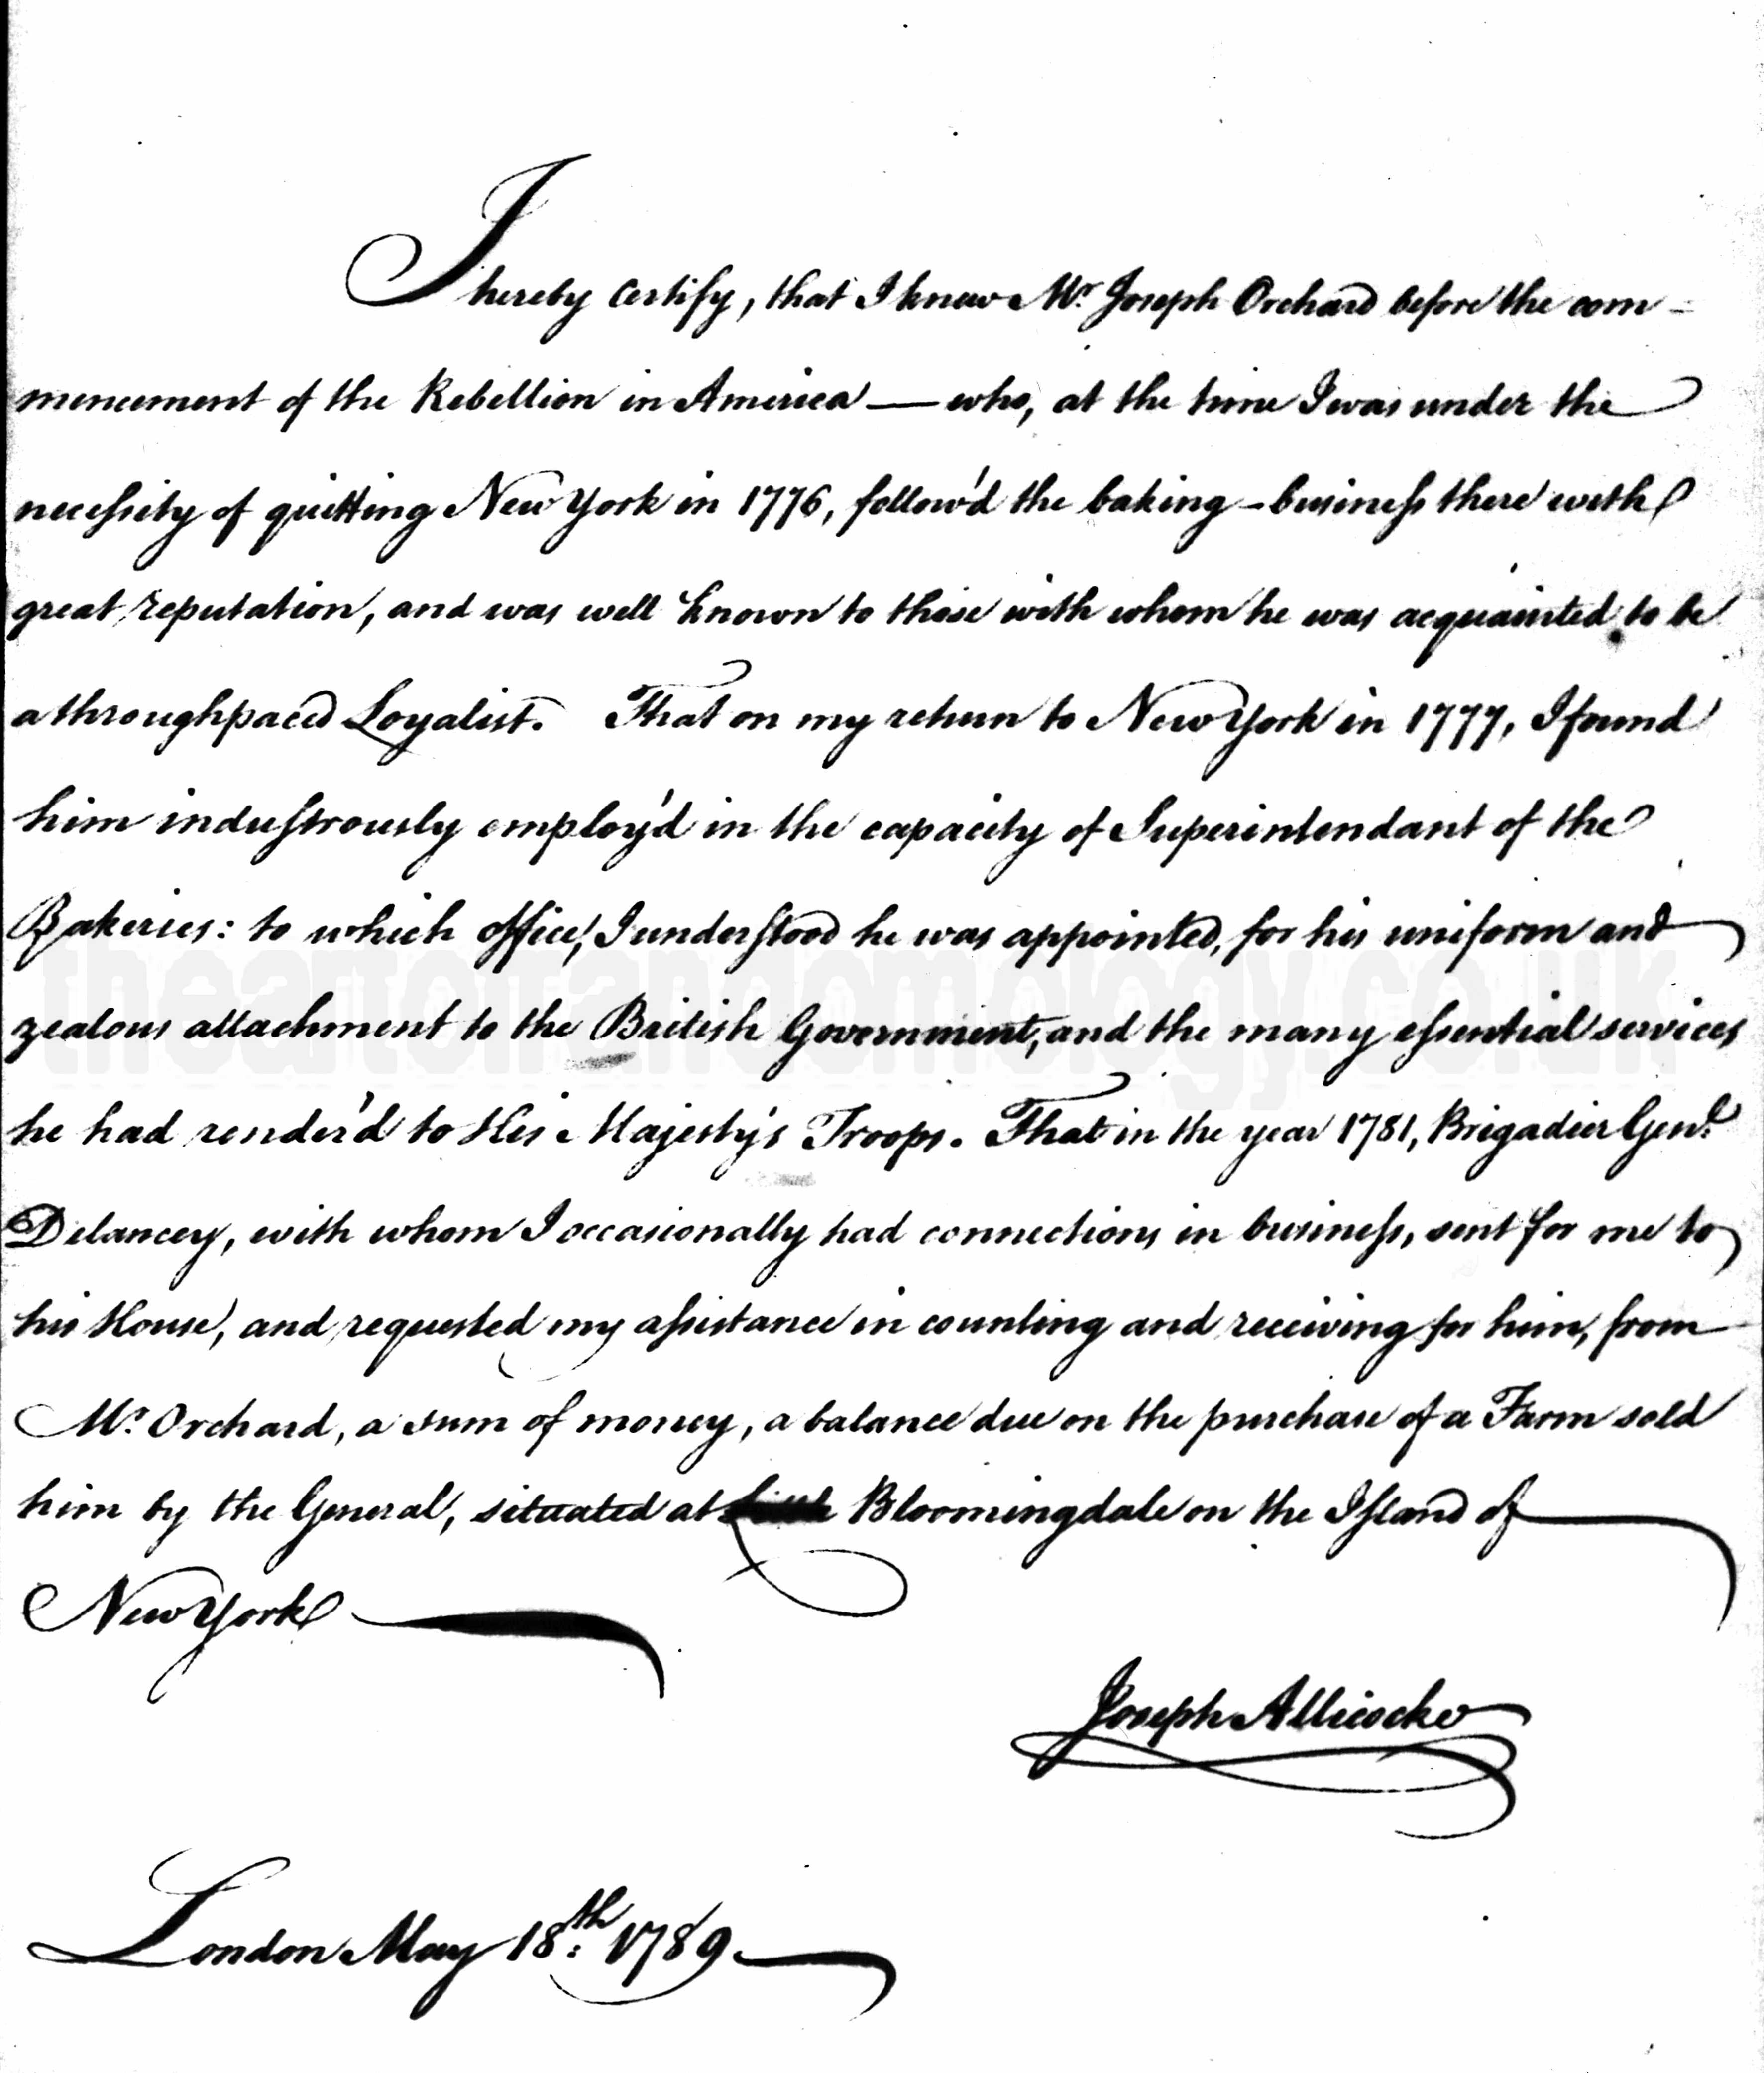 I hereby Certify, that I knew Mr. Joseph Orchard before the com=
mencement of the Rebellion in America — who, at the time I was under the
necessity of quitting New York in 1776, follow'd the baking-business there with
great reputation, and was well known to those with whom he was acquainted, to be
a throughpaced Loyalist. That on my return to New York in 1777, I found
him industrously employ'd in the capacity of Superintendant of the
Bakeries: to which office, I understood he was appointed, for his uniform and
zealous attachment to the British Government, and the many essential services
he had render'd to His Majesty's Troops. That in the year 1781, Brigadier Genl.
Delancey, with whom I occasionally had connections in business, sent for me to
his House, and requested my assistance in counting and receiving for him, from
Mr. Orchard, a sum of money, a balance due on the purchase of a Farm sold
him by the General, situated at Bloomingdale on the Island of
New York
Joseph Allicocke
London May 18th: 1789.
theartofrandomology.co.uk